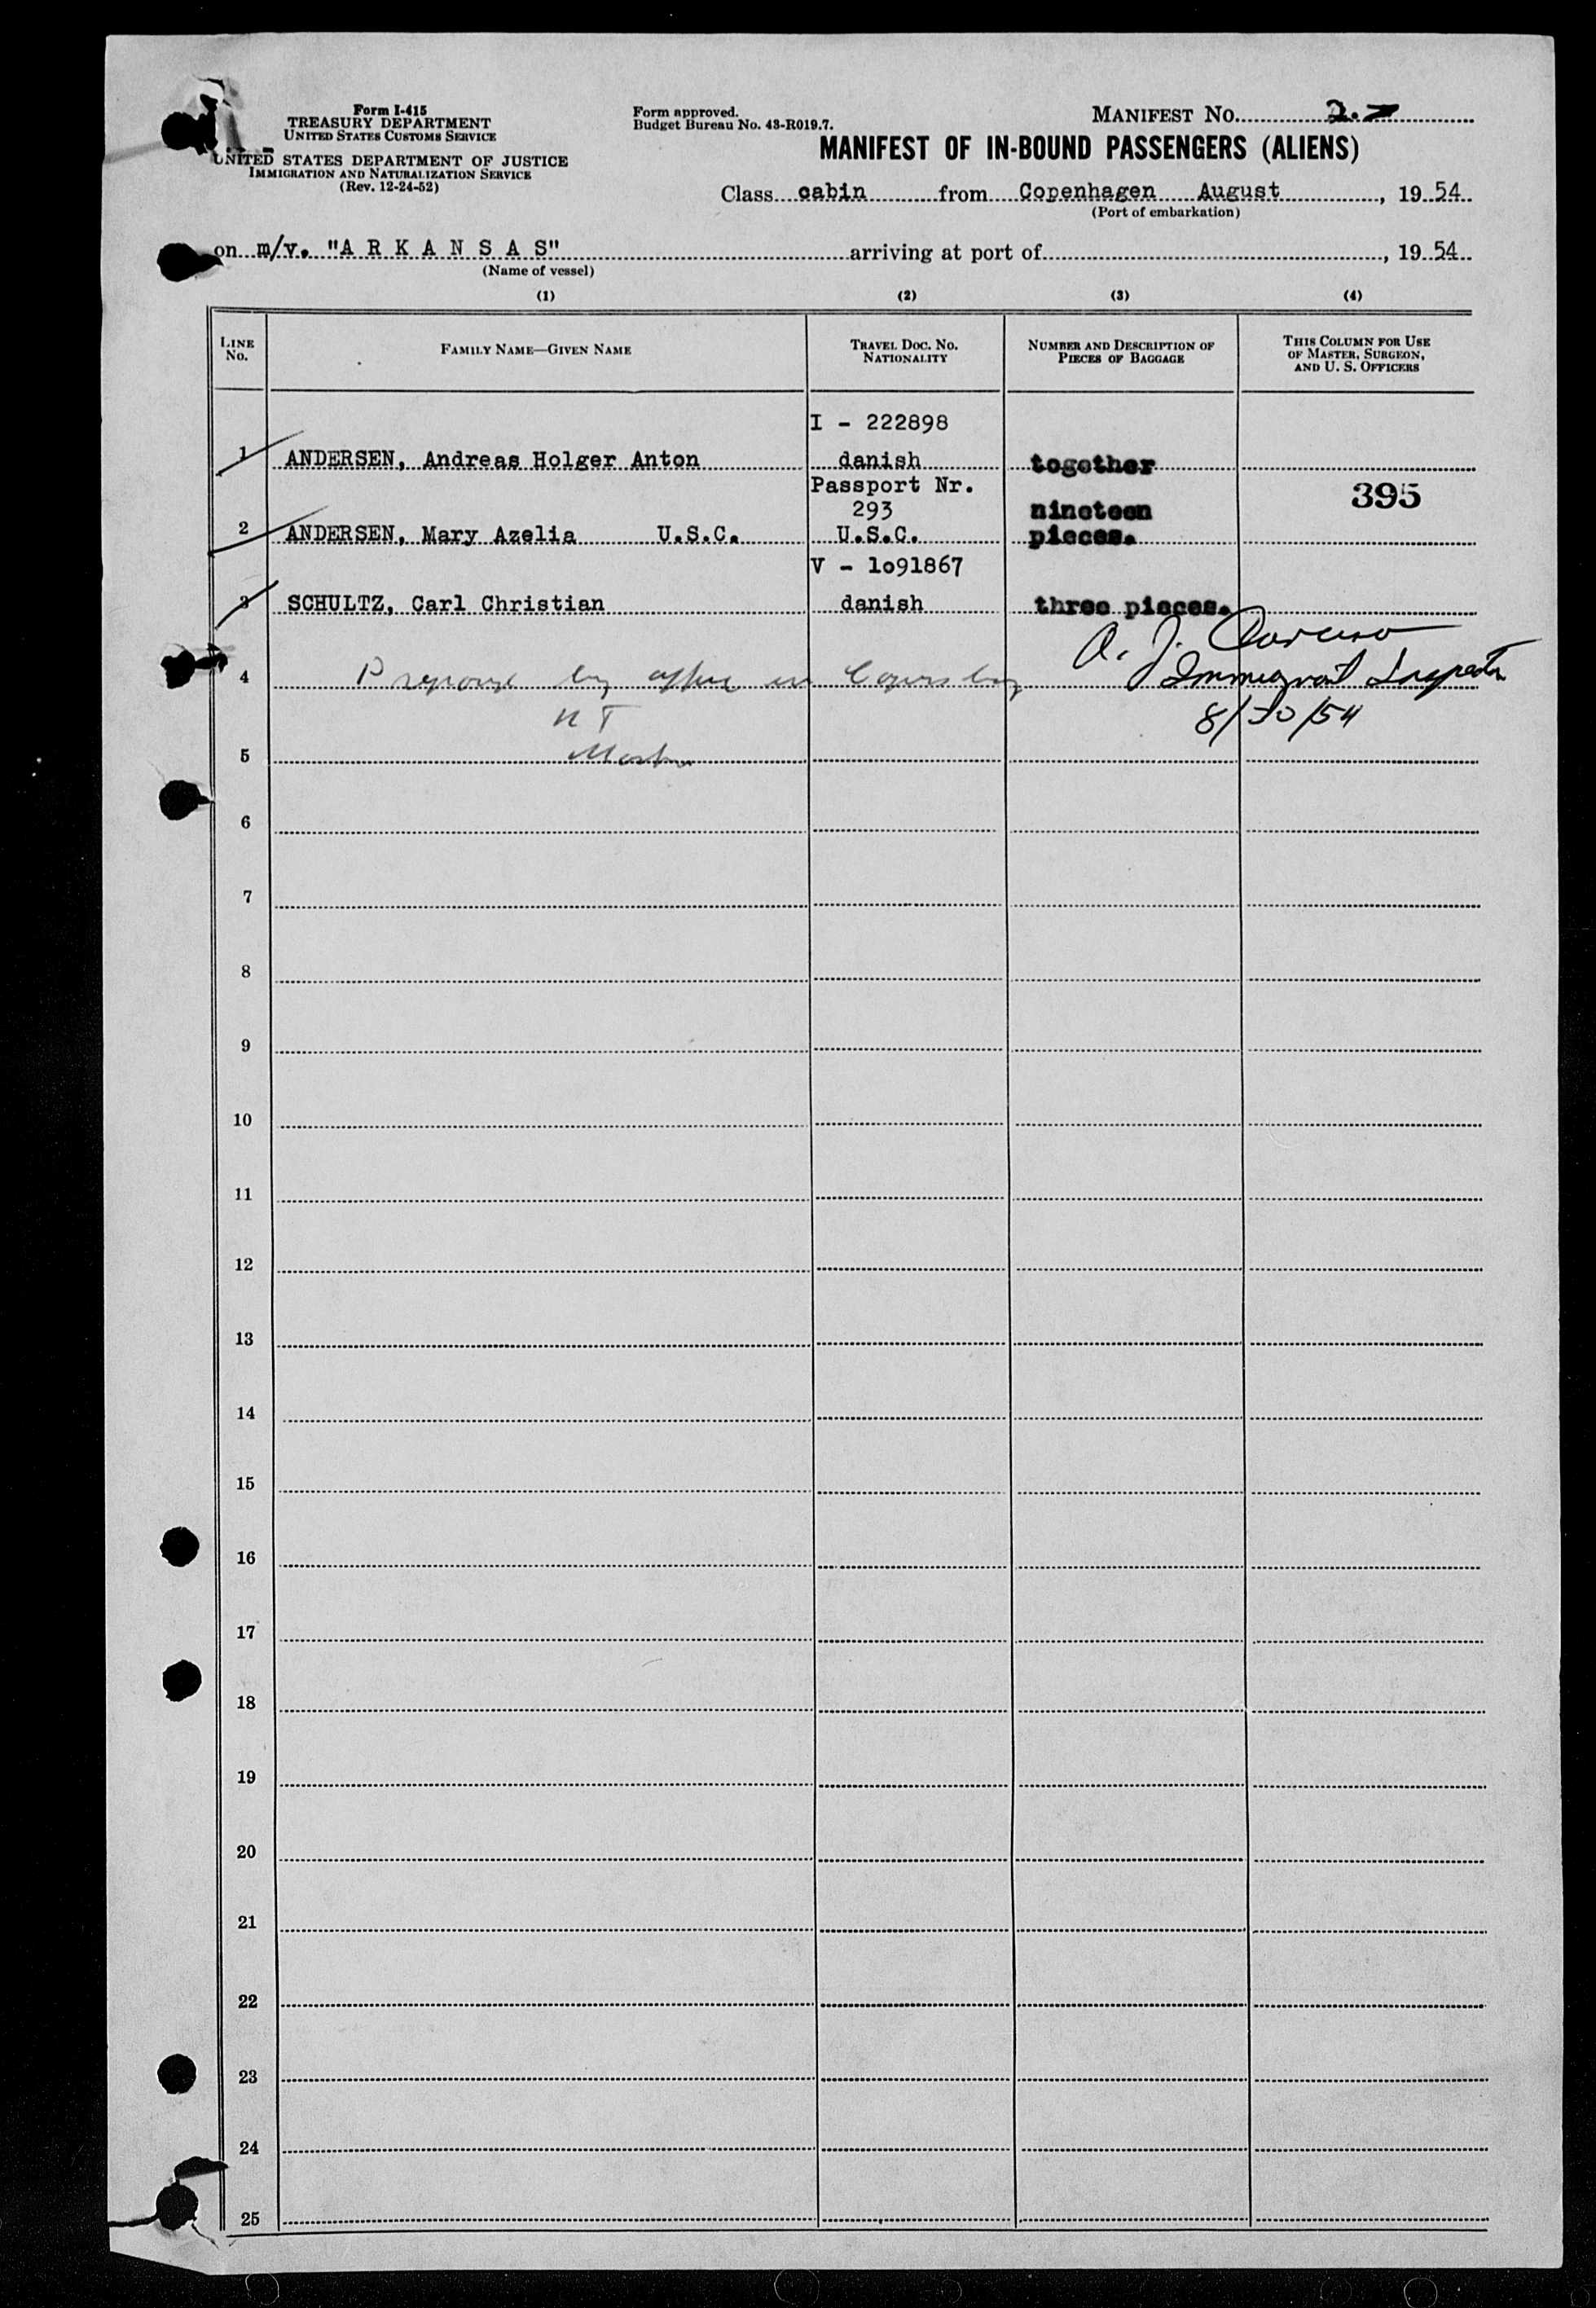 Form I-415
TREASURY DEPARTMENT
UNITED STATES CUSTOMS SERVICE
UNITED STATES DEPARTMENT OF JUSTICE
IMMIGRATION AND NATURALIZATION SERVICE
(Rev. 12-24-52)
Form approved.
Budget Bureau No. 43-R019.7.
MANIFEST No. 2.
MANIFEST OF IN-BOUND PASSENGERS (ALIENS)
Class cabin from Copenhagen August, 1954
(Port of embarkation)
on m/v. "A R K A N S A S" arriving at port of, 1954
(Name of vessel)
(1) (2) (3) (4)
LINE No.
FAMILY NAME—GIVEN NAME
TRAVEL DOC. No. NATIONALITY
NUMBER AND DESCRIPTION OF PIECES OF BAGGAGE
THIS COLUMN FOR USE OF MASTER, SURGEON, AND U. S. OFFICERS
I - 222898
1 ANDERSEN, Andreas Holger Anton danish together
Passport Nr.
293 nineteen 395
2 ANDERSEN, Mary Azelia U.S.C. U.S.C. pieces.
V - 1o91867
3 SCHULTZ, Carl Christian danish three pieces.
A. J.
4 by in Immigrant Inspector
8/30/54
5
6
7
8
9
10
11
12
13
14
15
16
17
18
19
20
21
22
23
24
25